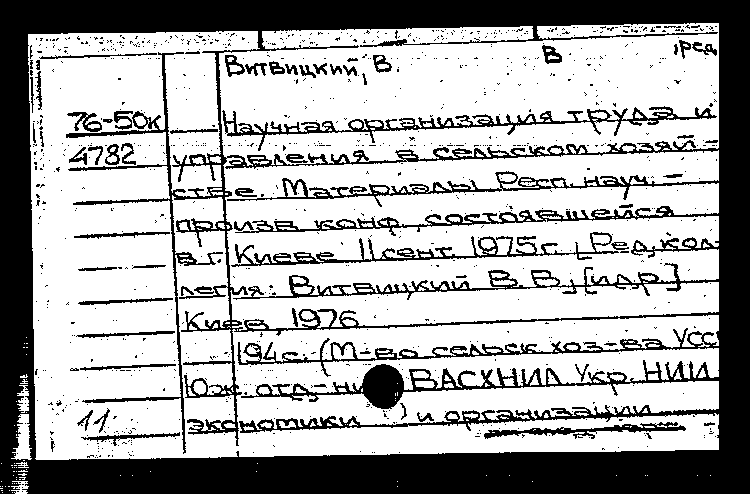 Витвицкий, В. В , ред.
76-50к Научная организация труда и
4782 управления в сельском хозяй-
стве. Материалы Респ. науч. -
произв конф., состоявшейся
в г. Киеве 11 сент. 1975г. [Ред.кол-
легия: Витвицкий В. В., [и др.]
Киев, 1976
194с. (М-во сельск хоз-ва УССР
Юж. отд-ни ВАСХНИЛ Укр. НИИ
11 экономики ) и организации